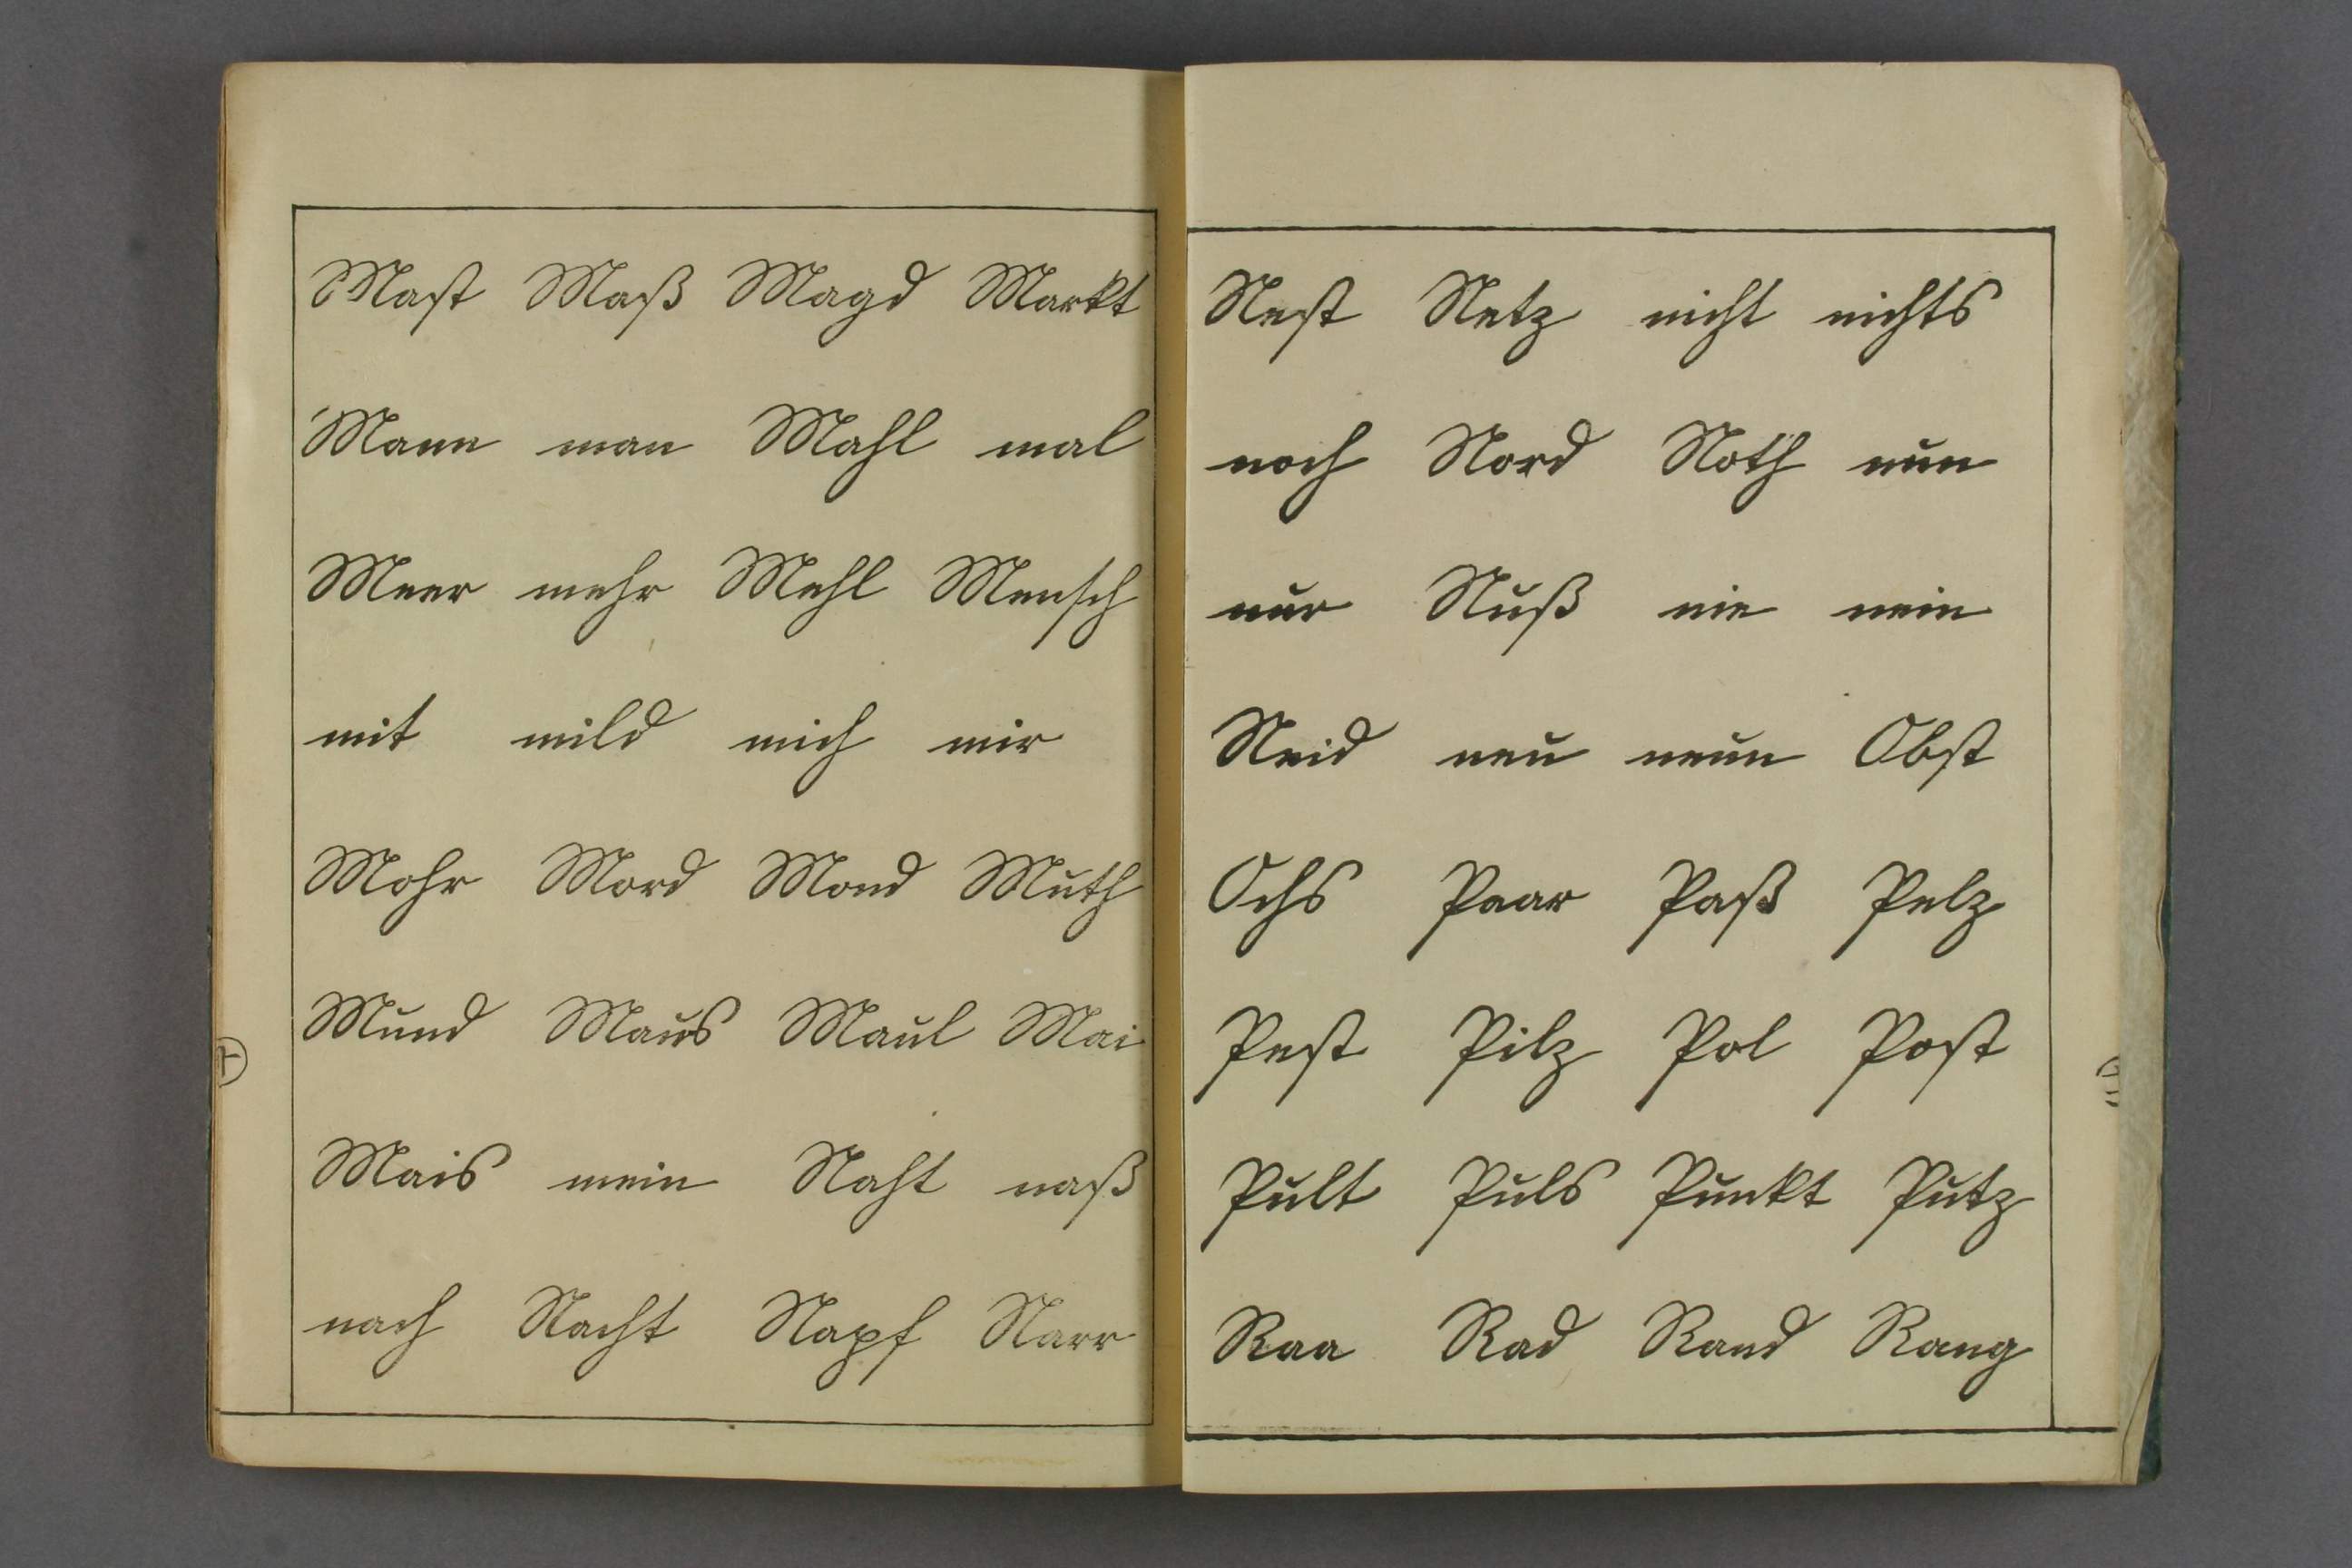 Mast Maß Magd Markt
Mann man Mahl mal
Meer mehr Mehl Mensch
mit mild mich mir
Mohr Mord Mond Muth
Mund Maus Maul Mai
Mais mein Naht naß
nach Nacht Napf Narr
Nest Netz nicht nichts
noch Nord Noth nun
nur Nuß nie nein
Neid neu neun Obst
Ochs Paar Paß Pelz
Pest Pilz Pol Post
Pult Puls Punkt Putz
Raa Rad Rand Rang